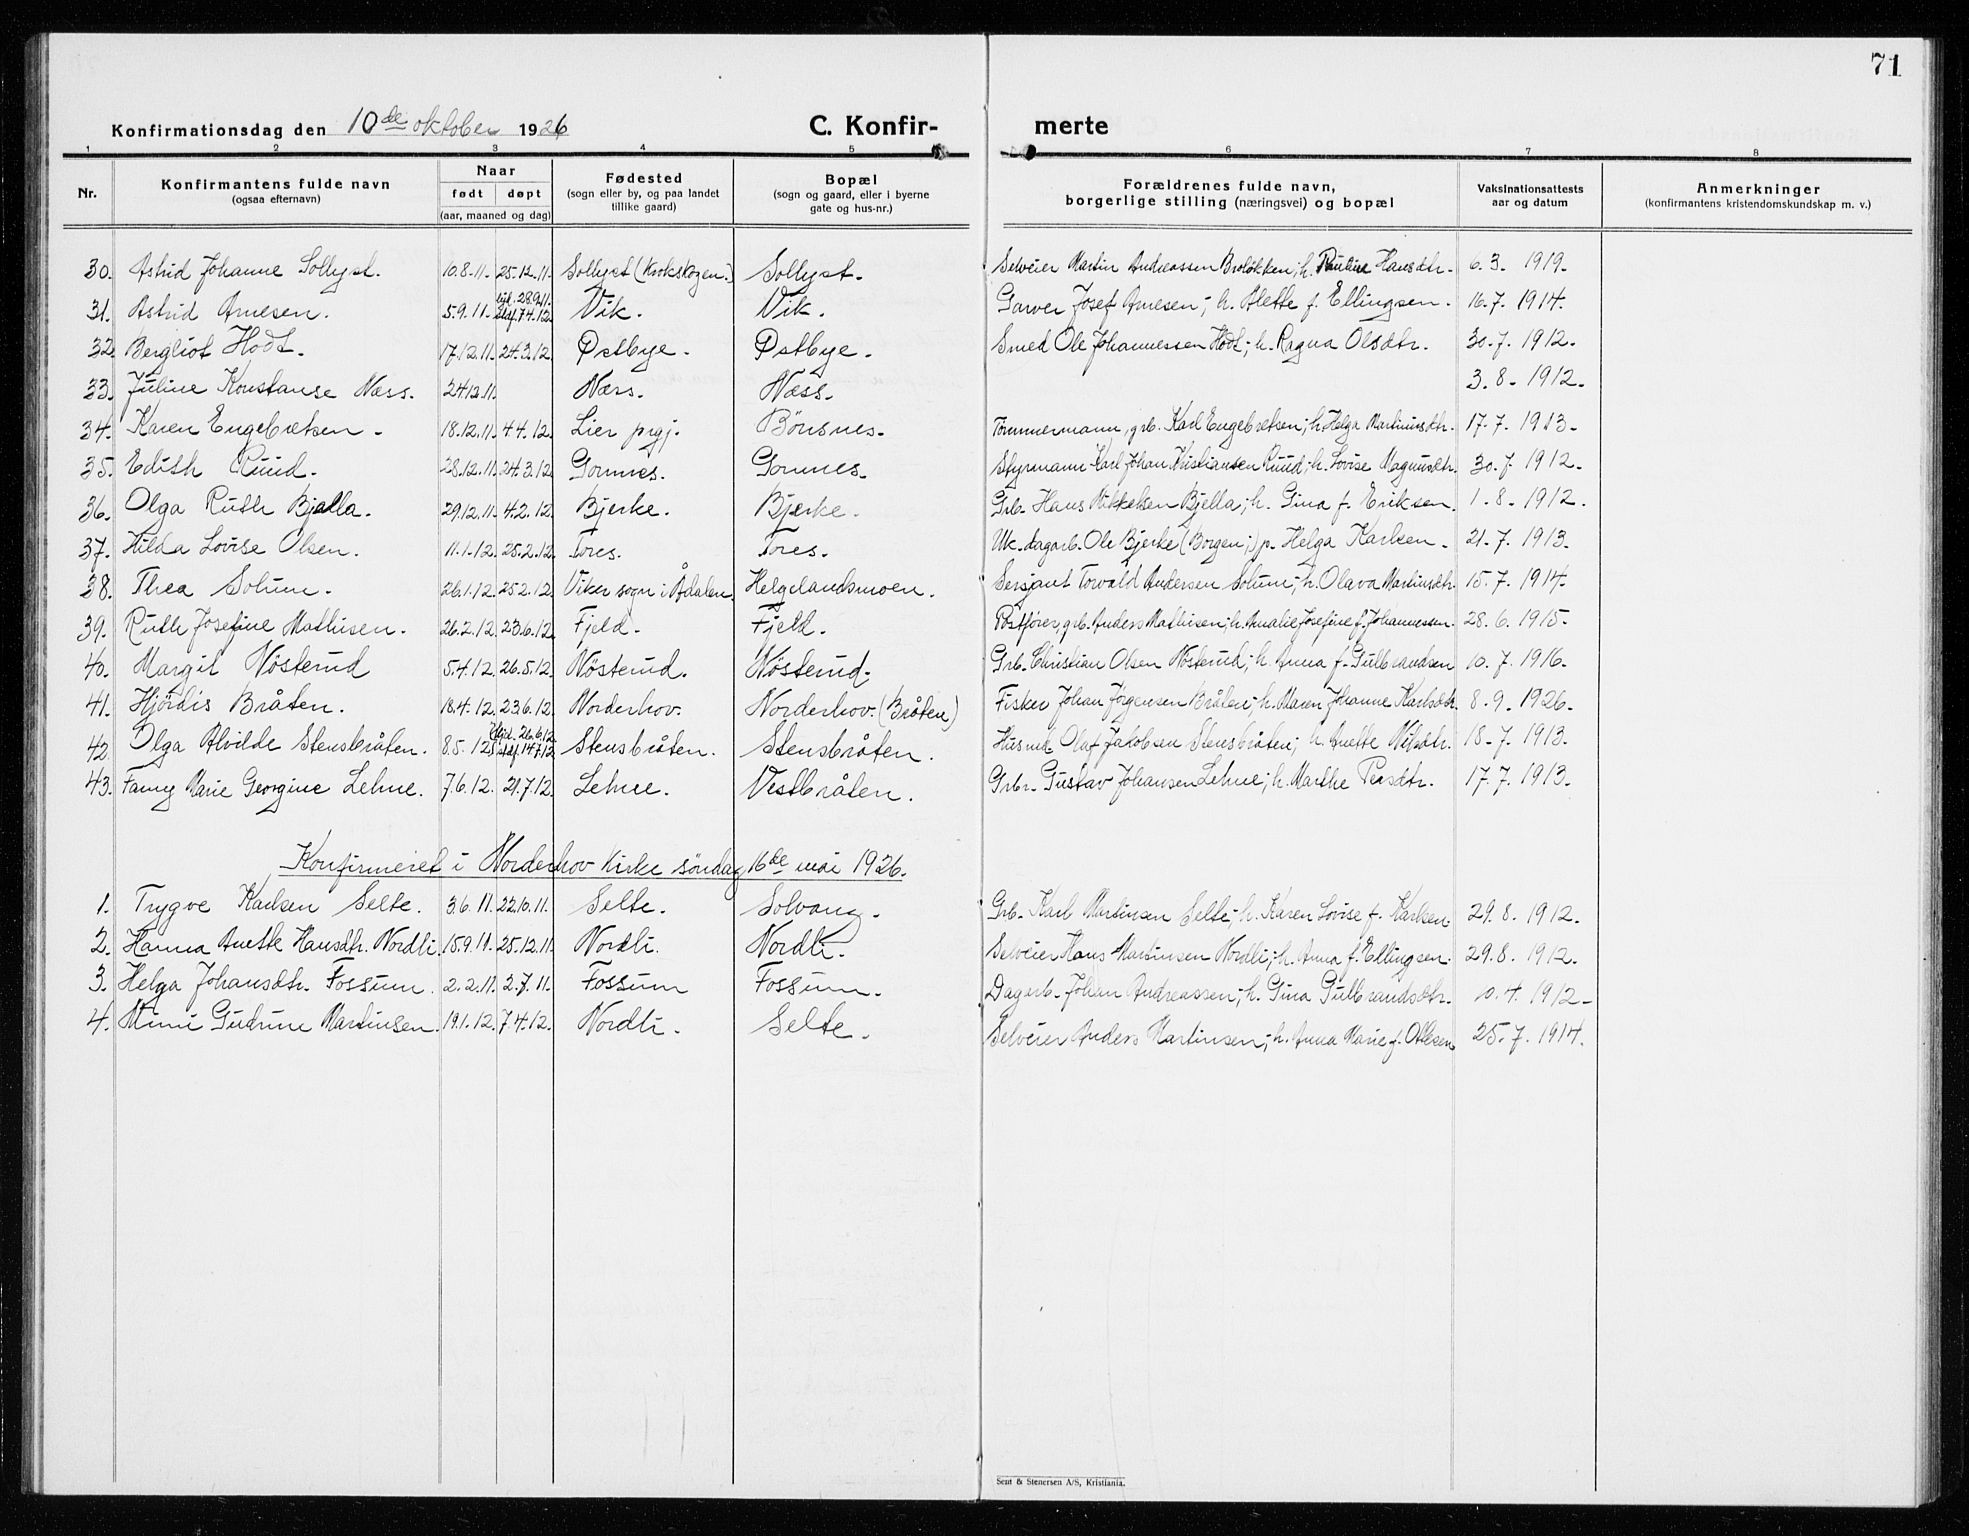 71
Konfirmationsdag den 10de oktober 1926 C. Konfir- merte
1 2 3 4 5 6 7 8
Nr. Konfirmantens fulde navn (ogsaa efternavn) Naar født døpt (aar, maaned og dag) Fødested (sogn eller by, og paa landet tillike gaard) Bopæl (sogn og gaard, eller i byerne gate og hus-nr.) Forældrenes fulde navn, borgerlige stilling (næringsvei) og bopæl Vaksinationsattests aar og datum Anmerkninger (konfirmantens kristendomskundskap m. v.)
30. Astrid Johanne Sollyst. 10.8.11. 25.12.11. Sollyst (Krokskogen.) Sollyst. Selveier Martin Andreassen Braløkken; h. Pauline Hansdtr. 6.3. 1919.
31. Astrid Arnesen. 5.9.11. hjd. 28.9.11. stdf. 7.4.12. Vik. Vik. Garver Josef Arnesen; h. Alette f. Ellingsen. 16.7. 1914.
32. Bergliot Hodt. 17.12.11. 24.3.12. Østbye. Østbye. Smed Ole Johannessen Hodt; h. Ragna Olsdtr. 30.7. 1912.
33. Juline Konstanse Næss. 24.12.11. Næss. Næss. 3.8. 1912.
34. Karen Engebretsen. 18.12.11. 4.4.12. Lier prgj. Bönsnes. Tömmermann, grb. Karl Engebretsen; h. Helga Martinusdtr. 17.7. 1913.
35. Edith Ruud. 28.12.11. 24.3.12. Gomnes. Gomnes. Styrmann Karl Johan Kristiansen Ruud; h. Lovise Magnusdtr. 30.7. 1912.
36. Olga Ruth Bjella. 29.12.11. 4.2.12. Bjerke. Bjerke. Grb. Hans Mikkelsen Bjella; h. Gina f. Eriksen. 1.8. 1912.
37. Hilda Lovise Olsen. 11.1.12. 25.2.12. Tores. Tores. Uk. dagarb. Ole Bjerke (Borgen;) p. Helga Karlsen. 21.7. 1913.
38. Thea Solum. 26.1.12. 25.2.12. Viker sogn i Ådalen. Helgelandsmoen. Sersjant Torvald Andersen Solum; h. Olava Martinsdtr. 15.7. 1914.
39. Ruth Josefine Mathisen. 26.2.12. 23.6.12. Fjeld. Fjeld. Postfører, grb. Anders Mathisen; h. Amalie Josefine f. Johannessen. 28.6. 1915.
40. Margit Nösterud 5.4.12. 26.5.12. Nösterud. Nösterud. Grb. Christian Olsen Nösterud; h. Anna f. Gulbrandsen 10.7. 1916.
41. Hjördis Bråten. 18.4.12. 23.6.12. Norderhov. Norderhov. (Bråten) Fisker Johan Jörgensen Bråten; h. Maren Johanne Karlsdtr. 8.9. 1926.
42. Olga Alvilde Stensbråten. 8.5.12. hjd. 26.6.12. stdf. 14.7.12. Stensbråten. Stensbråten. Husmd. Olaf Jakobsen Stensbråten; h. Anette Nilsdtr. 18.7. 1913.
43. Fanny Marie Georgine Lehne. 7.6.12. 21.7.12. Lehne. Vestbråten. Grbr. Gustav Johansen Lehne; h. Marthe Persdtr. 17.7. 1913.
Konfirmeret i Norderhov kirke søndag 16de mai 1926.
1. Trygve Karlsen Selte. 3.6.11. 22.10.11. Selte. Solvang. Grb. Karl Martinsen Selte; h. Karen Lovise f. Karlsen. 29.8. 1912.
2. Hanna Anette Hansdtr. Nordli. 15.9.11. 25.12.11. Nordli. Nordli. Selveier Hans Martinsen Nordli; h. Anna f. Ellingsen. 29.8. 1912.
3. Helga Johansdtr. Fossum. 2.2.11. 2.7.11. Fossum Fossum. Dagarb. Johan Andreassen; h. Gina Gulbrandsdtr. 10.4. 1912
4. Mimi Gudrune Martinsen. 19.1.12. 7.4.12. Nordli. Selte. Selveier Anders Martinsen; h. Anna Marie f. Olsen. 25.7. 1914.
Sem & Stenersen A/S, Kristiania.